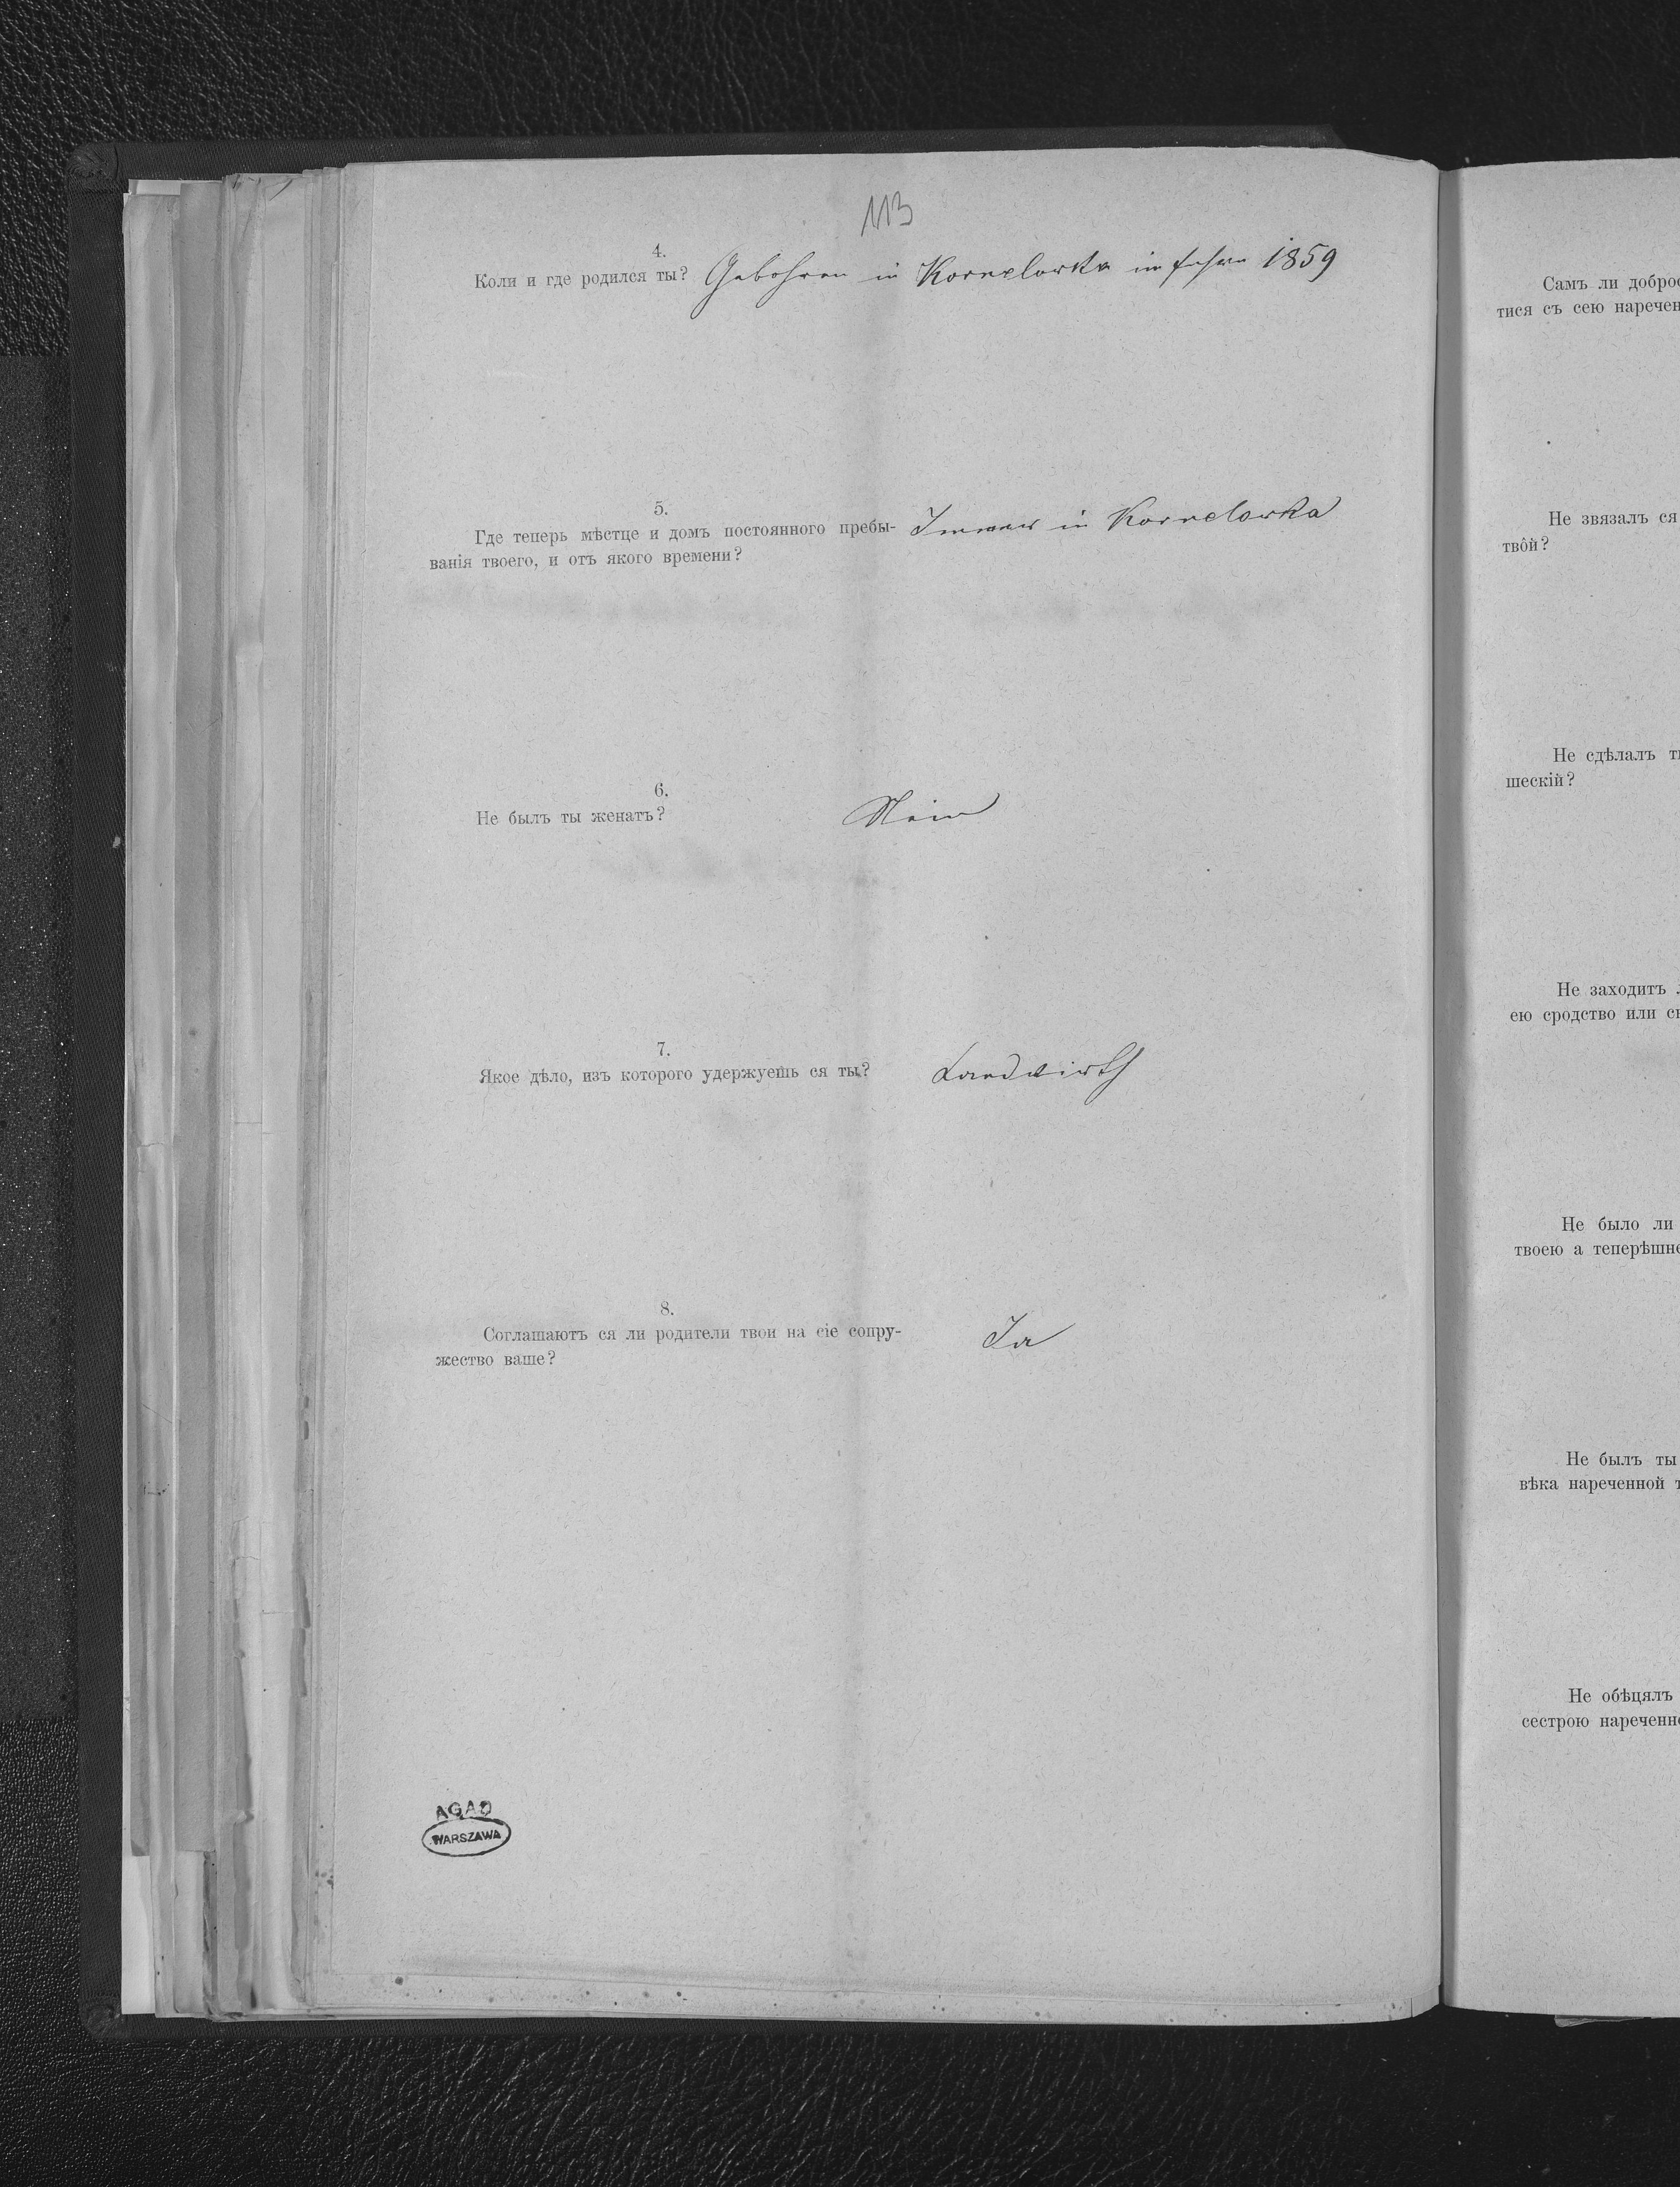 113
4.
Коли и где родился ты? Gebohren in Kornelowka im Jahre 1859
5.
Где теперь мѣстце и домъ постоянного пребы- Immer in Kornelowka
ванія твоего, и отъ якого времени?
6.
Не былъ ты женатъ? Nein
7.
Якое дѣло, изъ которого удержуешь ся ты? Landwirth
8.
Соглашаютъ ся ли родители твои на сіе сопру- Ja
жество ваше?
AGAD
WARSZAWA
Самъ ли доброс
тися съ сею наречен
Не звязалъ ся
твôй?
Не сдѣлалъ ты
шескій?
Не заходитъ
ею сродство или св
Не было ли
твоею а теперѣшне
Не былъ ты
вѣка нареченной т
Не обѣцялъ
сестрою нареченно